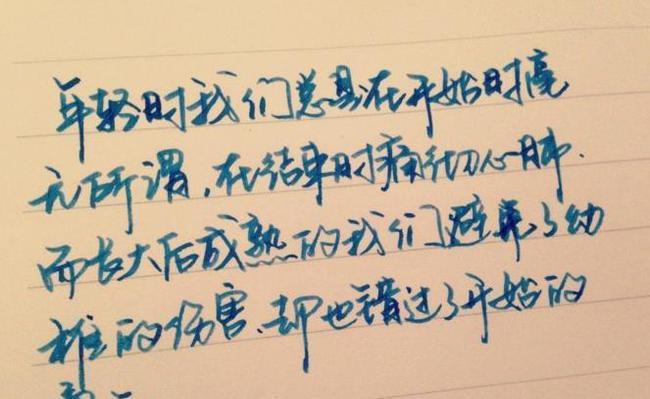 年轻时我们总是在开始时毫
无所谓，在结束时痛彻心肺.
而长大后成熟的我们避免了幼
稚的伤害、却也错过了开始的